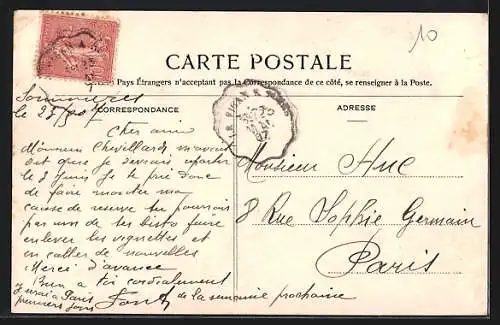 10
CARTE POSTALE
Pays Étrangers n'acceptant pas la Correspondance de ce côté, se renseigner à la Poste.
CORRESPONDANCE
ADRESSE
le 23/5/07
Cher ami
Monsieur Chevillard m'avait
dit que je devrais
le 2 Juin je te prie donc
de faire monter ma
caisse de reserve tu pourrais
par un de tes faire
enlever les vignettes et
en coller de nouvelles
Merci d'avance
Bien à toi cordialement
Je serai à Paris
premiers jours
de la semaine prochaine
Monsieur Huc
8 Rue Sophie Germain
Paris